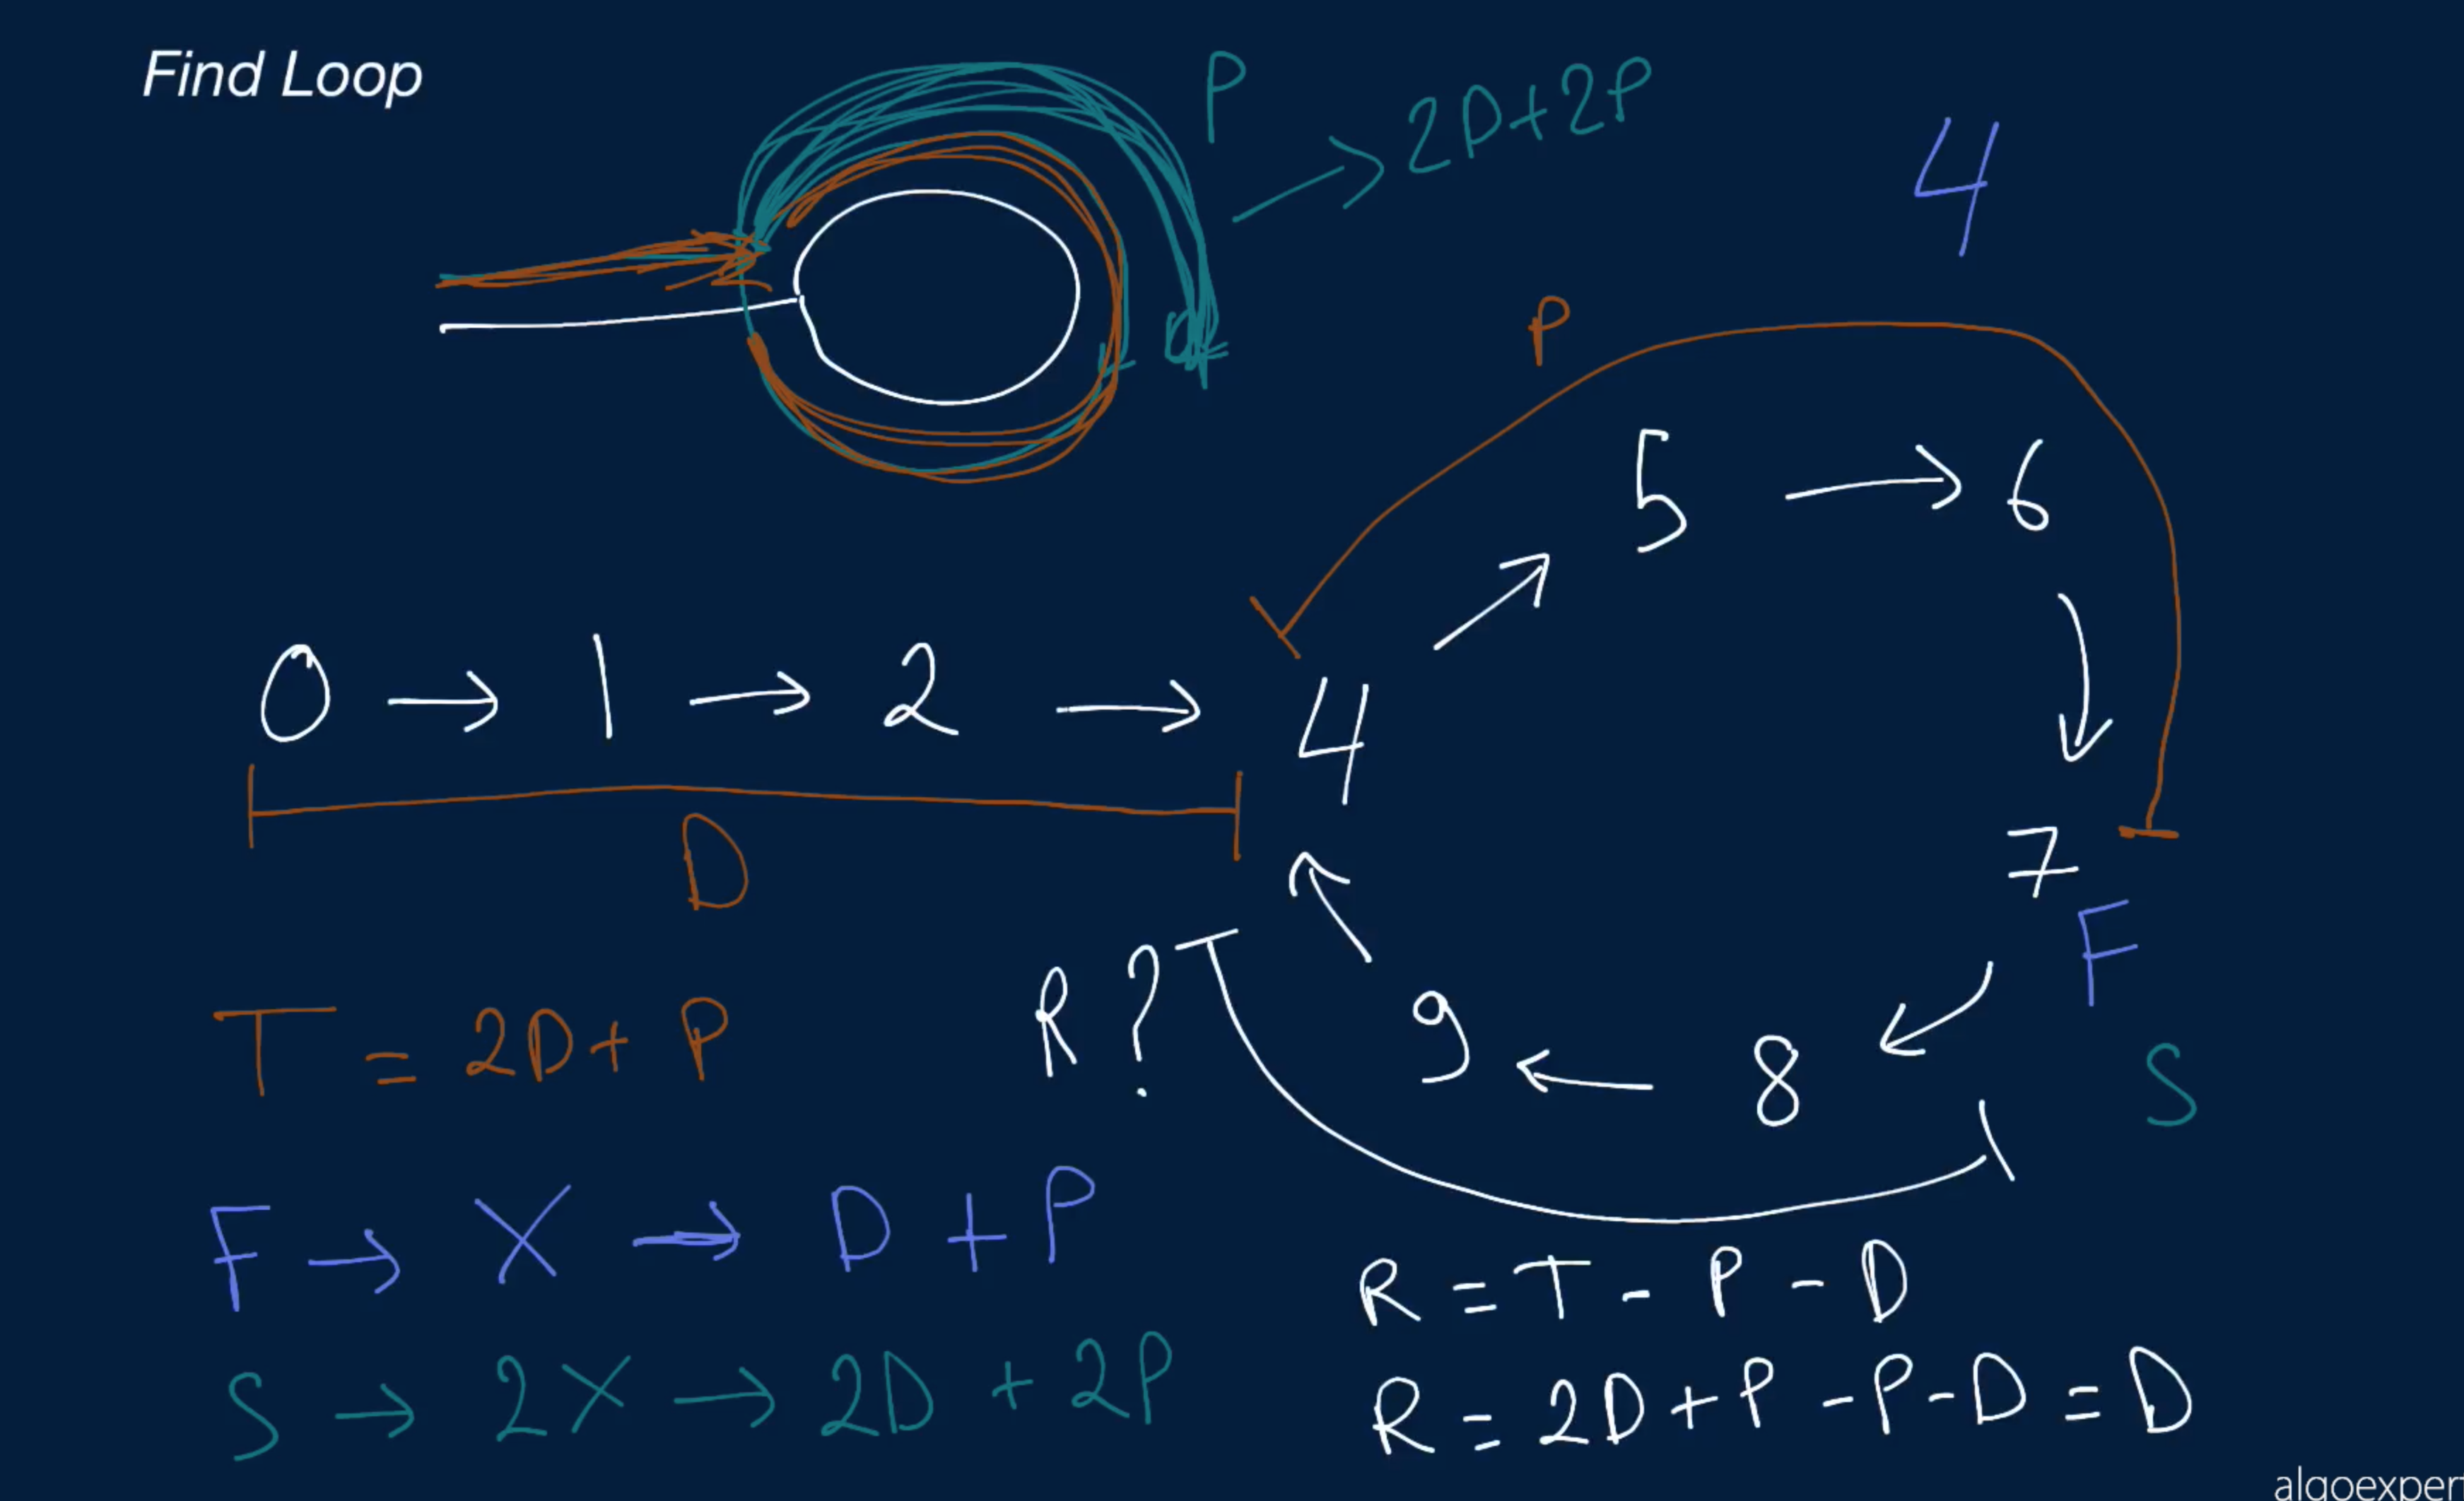 Find Loop
P
→ 2D+2P
4
P
5 → 6
0 → 1 → 2 → 4
7
D
F
R?
9 ← 8
S
T = 2D+ P
F → X → D + P
R = T - P - D
S → 2X → 2D + 2P
R = 2D+P-P-D = D
algoexper